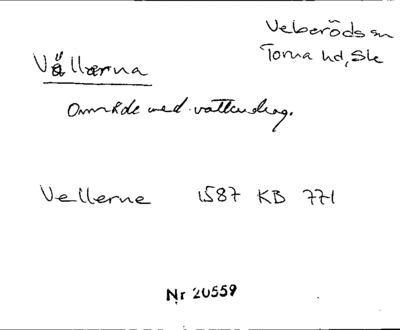 Veberöds sn
Torna hd, Sk
Vällarna
Område med vattendrag.
Vellerne 1587 KB 771
Nr 20559